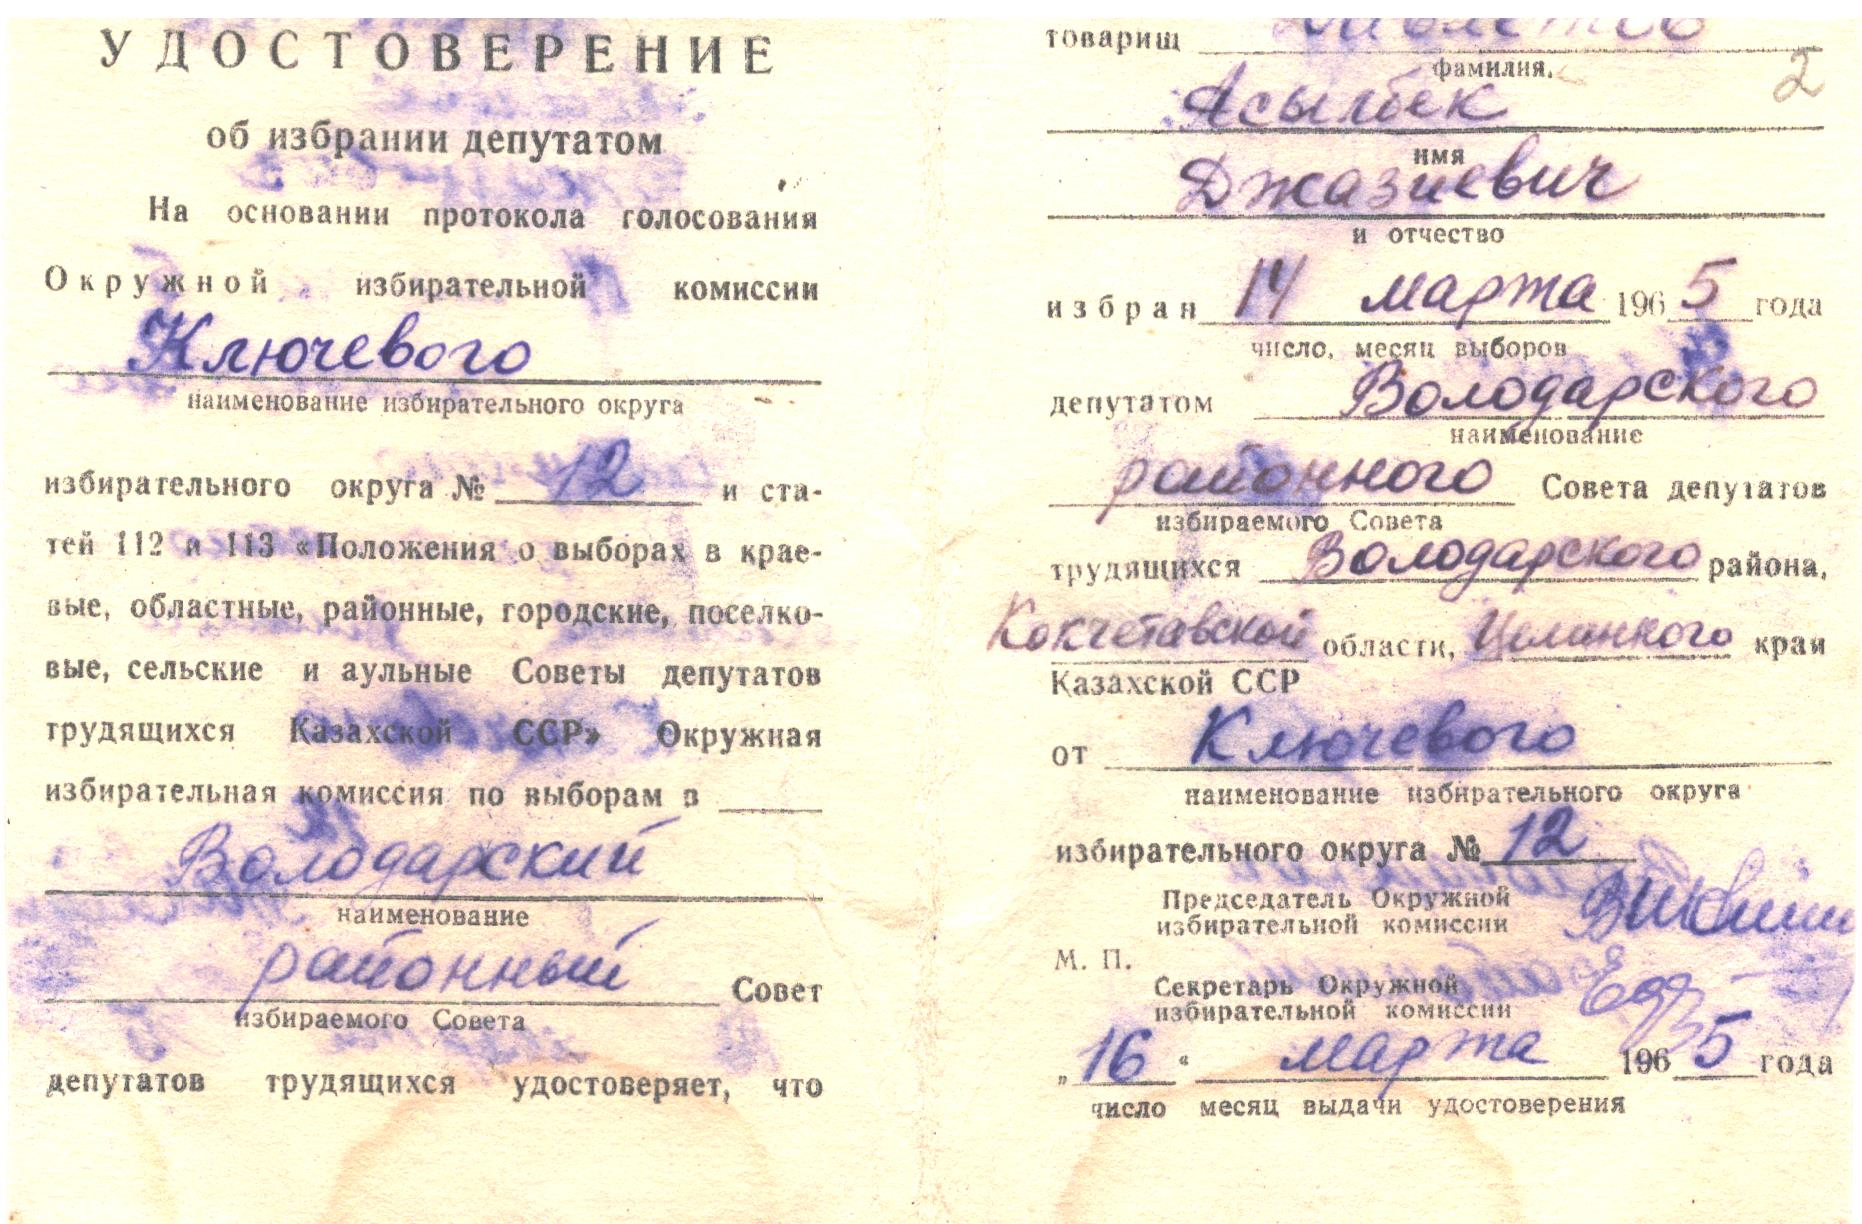 УДОСТОВЕРЕНИЕ
об избрании депутатом
На основании протокола голосования
Окружной избирательной комиссии
Ключевого
наименование избирательного округа
избирательного округа № 12 и ста-
тей 112 и 113 «Положения о выборах в крае-
вые, областные, районные, городские, поселко-
вые, сельские и аульные Советы депутатов
трудящихся Казахской ССР» Окружная
избирательная комиссия по выборам в
Володарский
наименование
районный Совет
избираемого Совета
депутатов трудящихся удостоверяет, что
товарищ
фамилия,
2
Асылбек
имя
Джазиевич
и отчество
избран 14 марта 1965 года
число, месяц выборов
депутатом Володарского
наименование
районного Совета депутатов
избираемого Совета
трудящихся Володарского района,
Кокчетавской области, Целинного края
Казахской ССР
от Ключевого
наименование избирательного округа
избирательного округа № 12
Председатель Окружной
избирательной комиссии
М. П.
Секретарь Окружной
избирательной комиссии
„16“ марта 1965 года
число месяц выдачи удостоверения